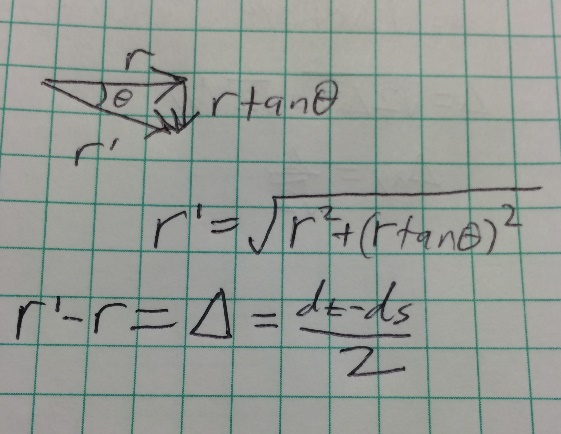 r
θ
r tanθ
r'
r' = √(r² + (r tanθ)²)
r' - r = Δ = (dt - ds)/2